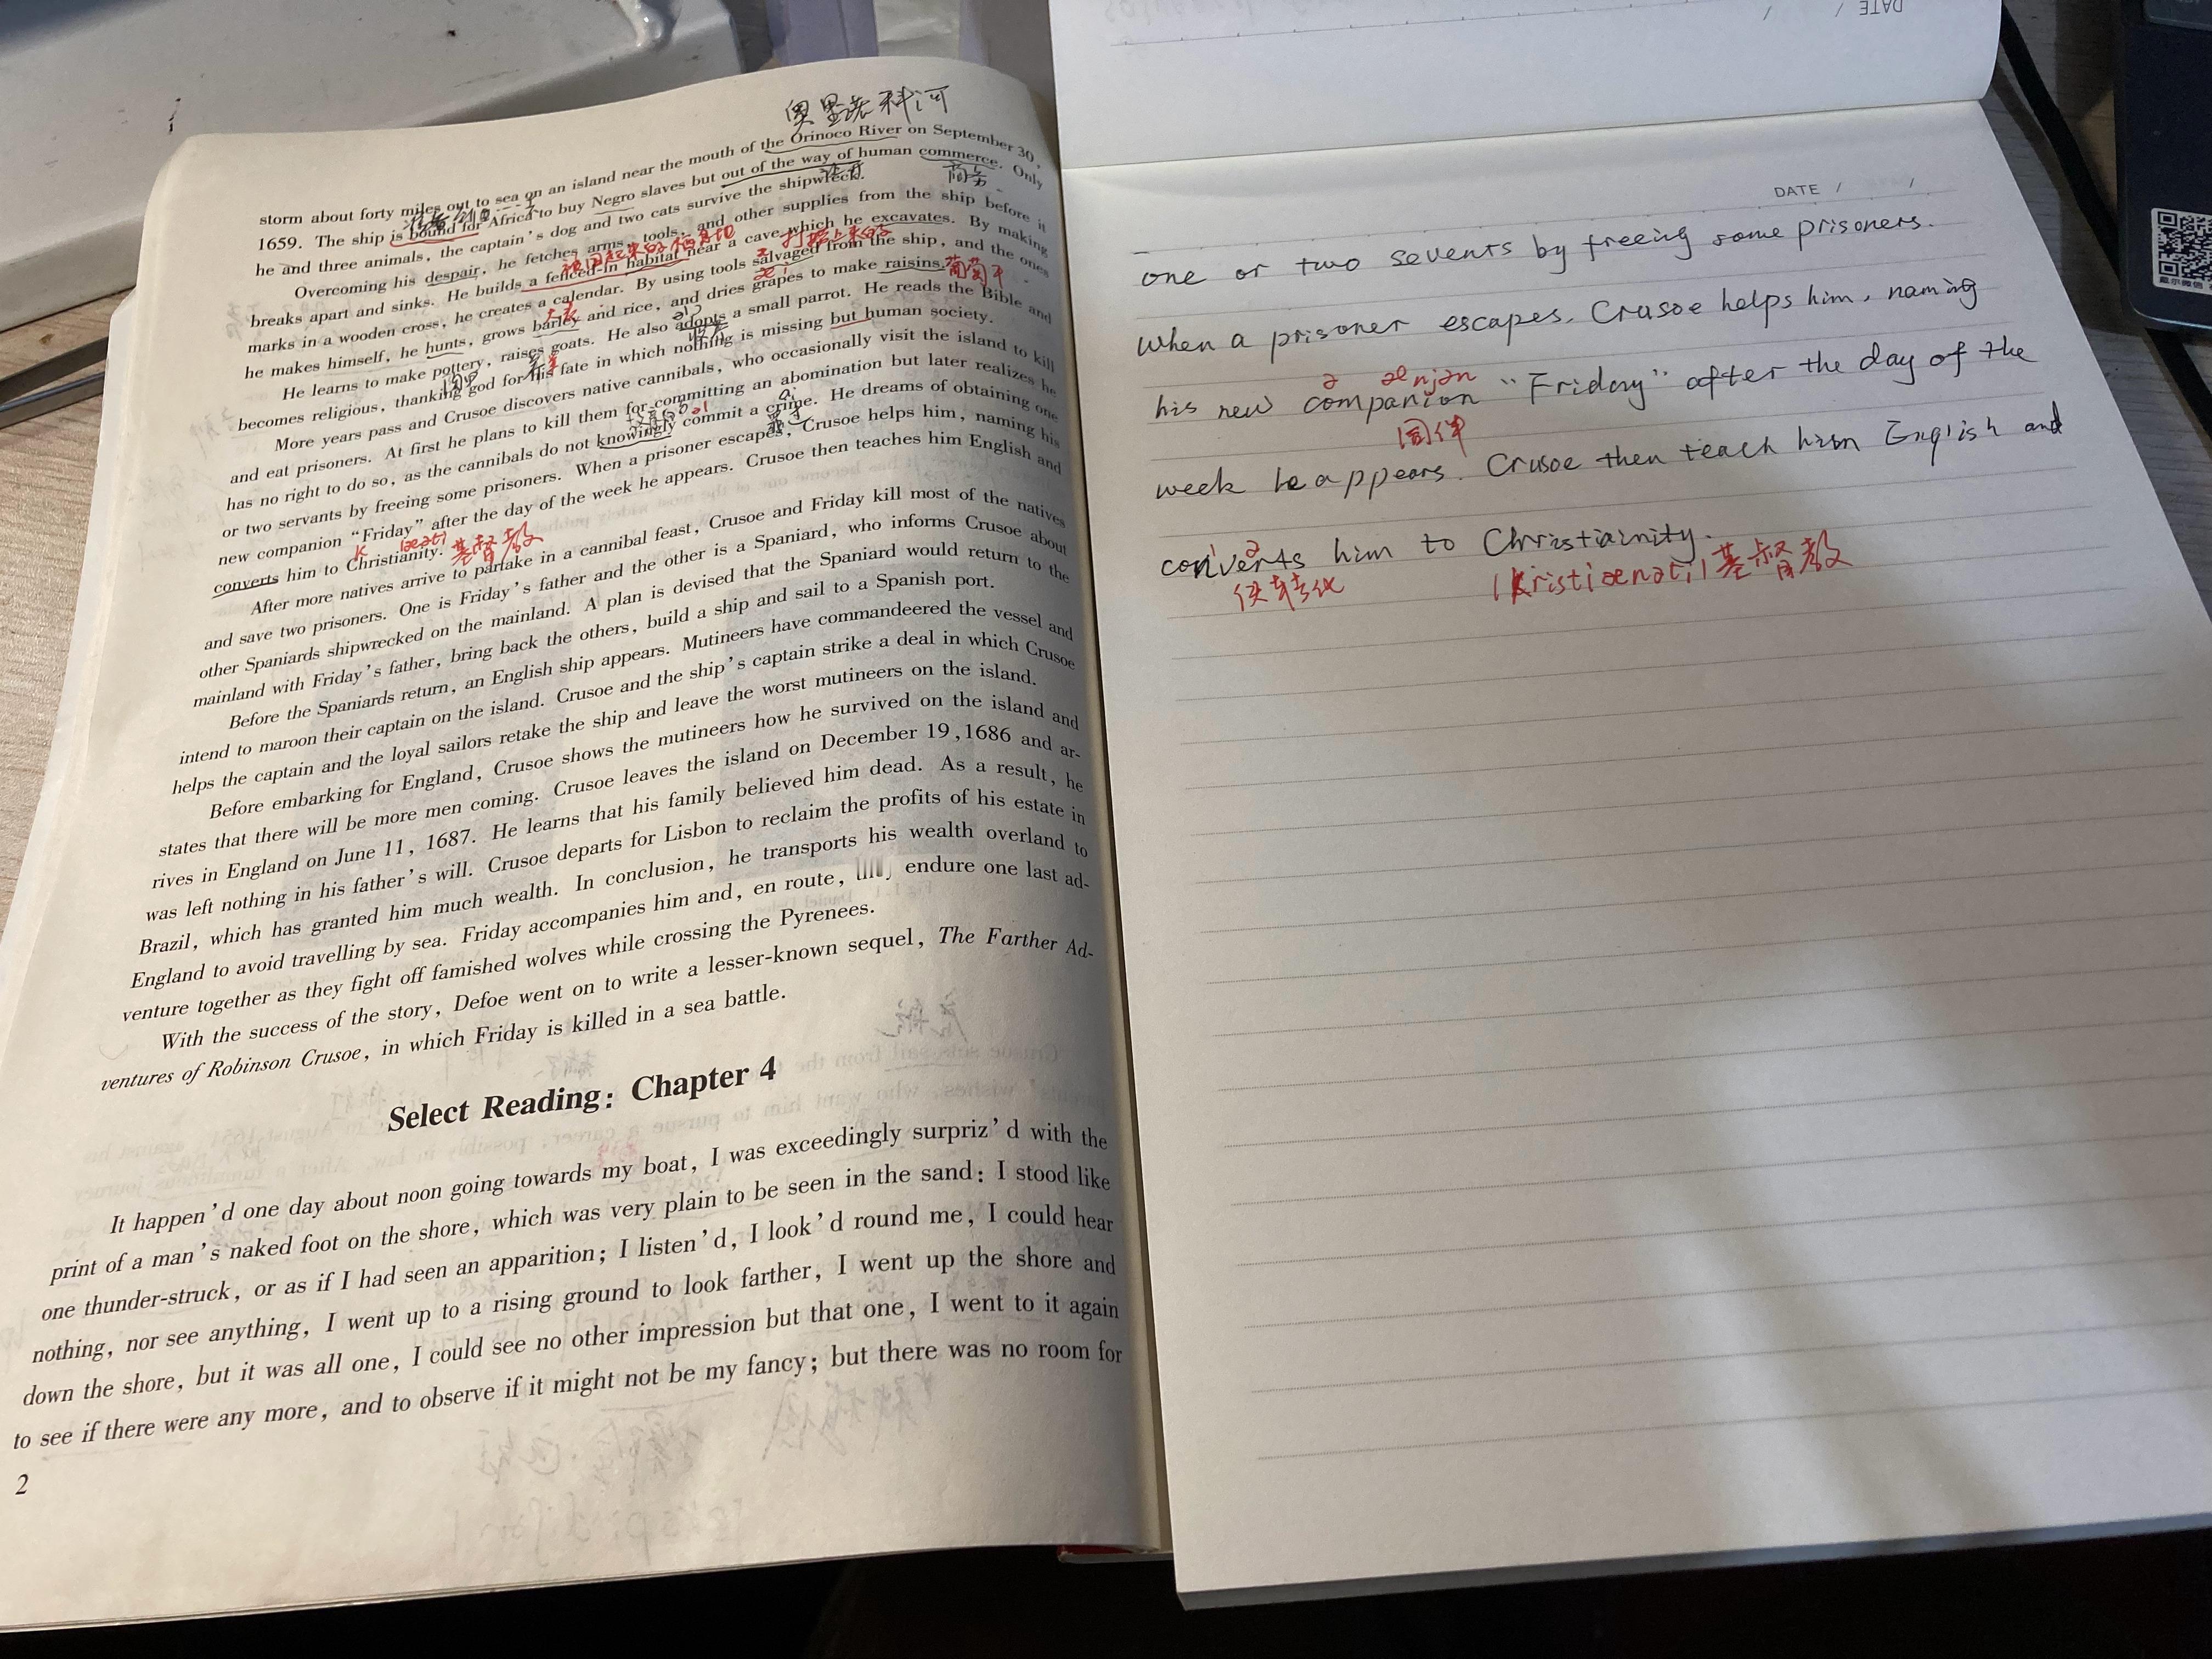 奥里诺科河
storm about forty miles out to sea on an island near the mouth of the Orinoco River on September 30,
1659. The ship is bound for Africa to buy Negro slaves but out of the way of human commerce. Only
商务
he and three animals, the captain's dog and two cats survive the shipwreck.
Overcoming his despair, he fetches arms, tools, and other supplies from the ship before it
breaks apart and sinks. He builds a fenced-in habitat near a cave which he excavates. By making
marks in a wooden cross, he creates a calendar. By using tools salvaged from the ship, and the ones
he makes himself, he hunts, grows barley and rice, and dries grapes to make raisins. 葡萄干
大麦
He learns to make pottery, raises goats. He also adopts a small parrot. He reads the Bible and
becomes religious, thanking god for his fate in which nothing is missing but human society.
More years pass and Crusoe discovers native cannibals, who occasionally visit the island to kill
and eat prisoners. At first he plans to kill them for committing an abomination but later realizes he
has no right to do so, as the cannibals do not knowingly commit a crime. He dreams of obtaining one
or two servants by freeing some prisoners. When a prisoner escapes, Crusoe helps him, naming his
new companion "Friday" after the day of the week he appears. Crusoe then teaches him English and
converts him to Christianity. 基督教
After more natives arrive to partake in a cannibal feast, Crusoe and Friday kill most of the natives
and save two prisoners. One is Friday's father and the other is a Spaniard, who informs Crusoe about
other Spaniards shipwrecked on the mainland. A plan is devised that the Spaniard would return to the
mainland with Friday's father, bring back the others, build a ship and sail to a Spanish port.
Before the Spaniards return, an English ship appears. Mutineers have commandeered the vessel and
intend to maroon their captain on the island. Crusoe and the ship's captain strike a deal in which Crusoe
helps the captain and the loyal sailors retake the ship and leave the worst mutineers on the island.
Before embarking for England, Crusoe shows the mutineers how he survived on the island and
states that there will be more men coming. Crusoe leaves the island on December 19,1686 and ar-
rives in England on June 11, 1687. He learns that his family believed him dead. As a result, he
was left nothing in his father's will. Crusoe departs for Lisbon to reclaim the profits of his estate in
Brazil, which has granted him much wealth. In conclusion, he transports his wealth overland to
England to avoid travelling by sea. Friday accompanies him and, en route, endure one last ad-
venture together as they fight off famished wolves while crossing the Pyrenees.
With the success of the story, Defoe went on to write a lesser-known sequel, The Farther Ad-
ventures of Robinson Crusoe, in which Friday is killed in a sea battle.
Select Reading: Chapter 4
It happen'd one day about noon going towards my boat, I was exceedingly surpriz'd with the
print of a man's naked foot on the shore, which was very plain to be seen in the sand: I stood like
one thunder-struck, or as if I had seen an apparition; I listen'd, I look'd round me, I could hear
nothing, nor see anything, I went up to a rising ground to look farther, I went up the shore and
down the shore, but it was all one, I could see no other impression but that one, I went to it again
to see if there were any more, and to observe if it might not be my fancy; but there was no room for
2
DATE / /
DATE / /
one or two sevents by freeing some prisoners.
when a prisoner escapes. Crusoe helps him, naming
ə æ njən
his new companion "Friday" after the day of the
同伴
week he appears. Crusoe then teach him English and
converts him to Christiainity.
使转化 kristiænəti 基督教